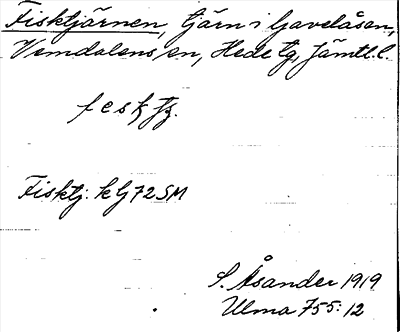 Fisktjärnen, tjärn i Gavelåsen,
Vemdalens sn, Hede tg, Jämtl. l.
fesktj.
Fisktj: kbg 72 SM
S. Åsander 1919
Ulma 755:12